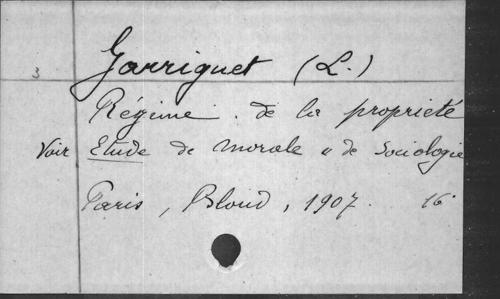 Garriguet (L.)
3
Régime de la propriété
Voir Etude de morale " de Sociologie
Paris, Bloud, 1907. 16°